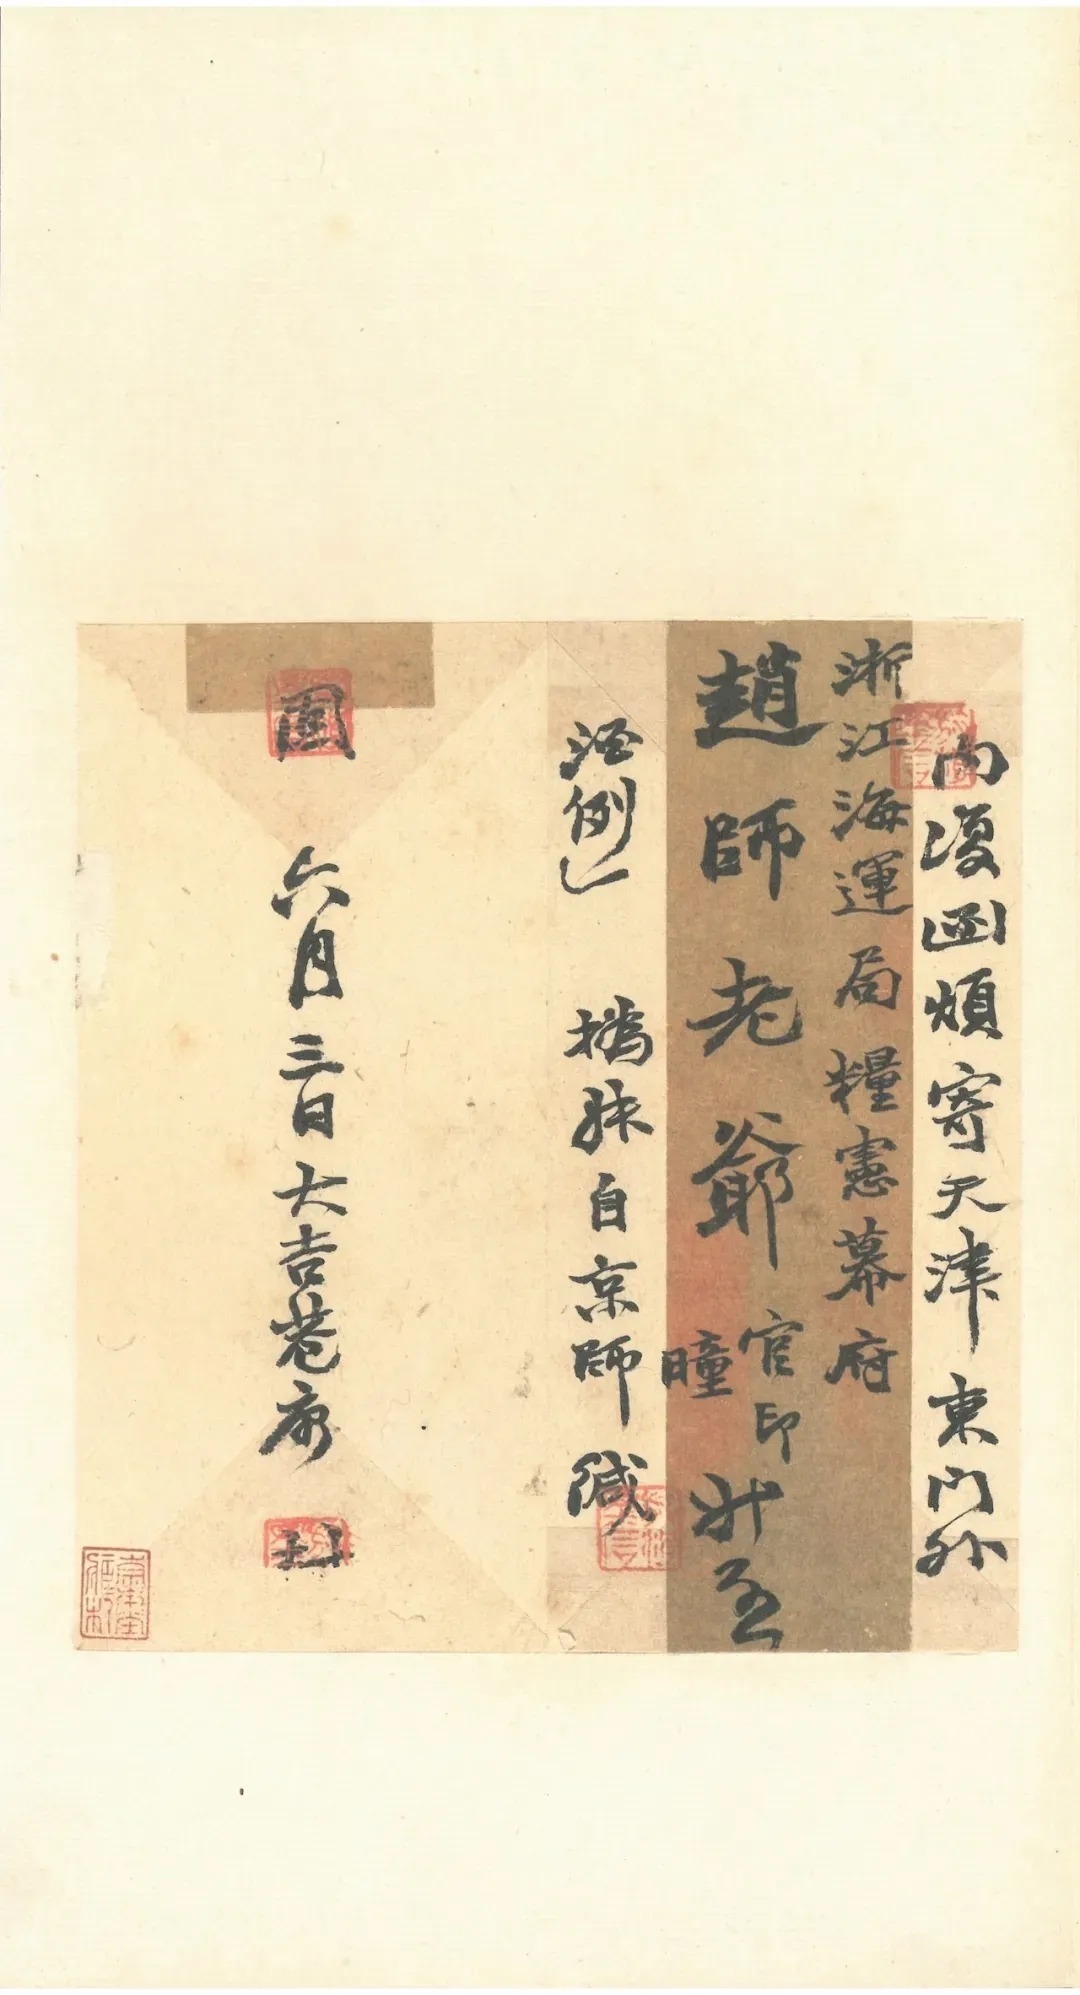 內復函煩寄天津東門外
浙江海運局糧憲幕府
趙師老爺官印曈升至
酒例 撝叔自京師緘
六月三日大吉巷齋